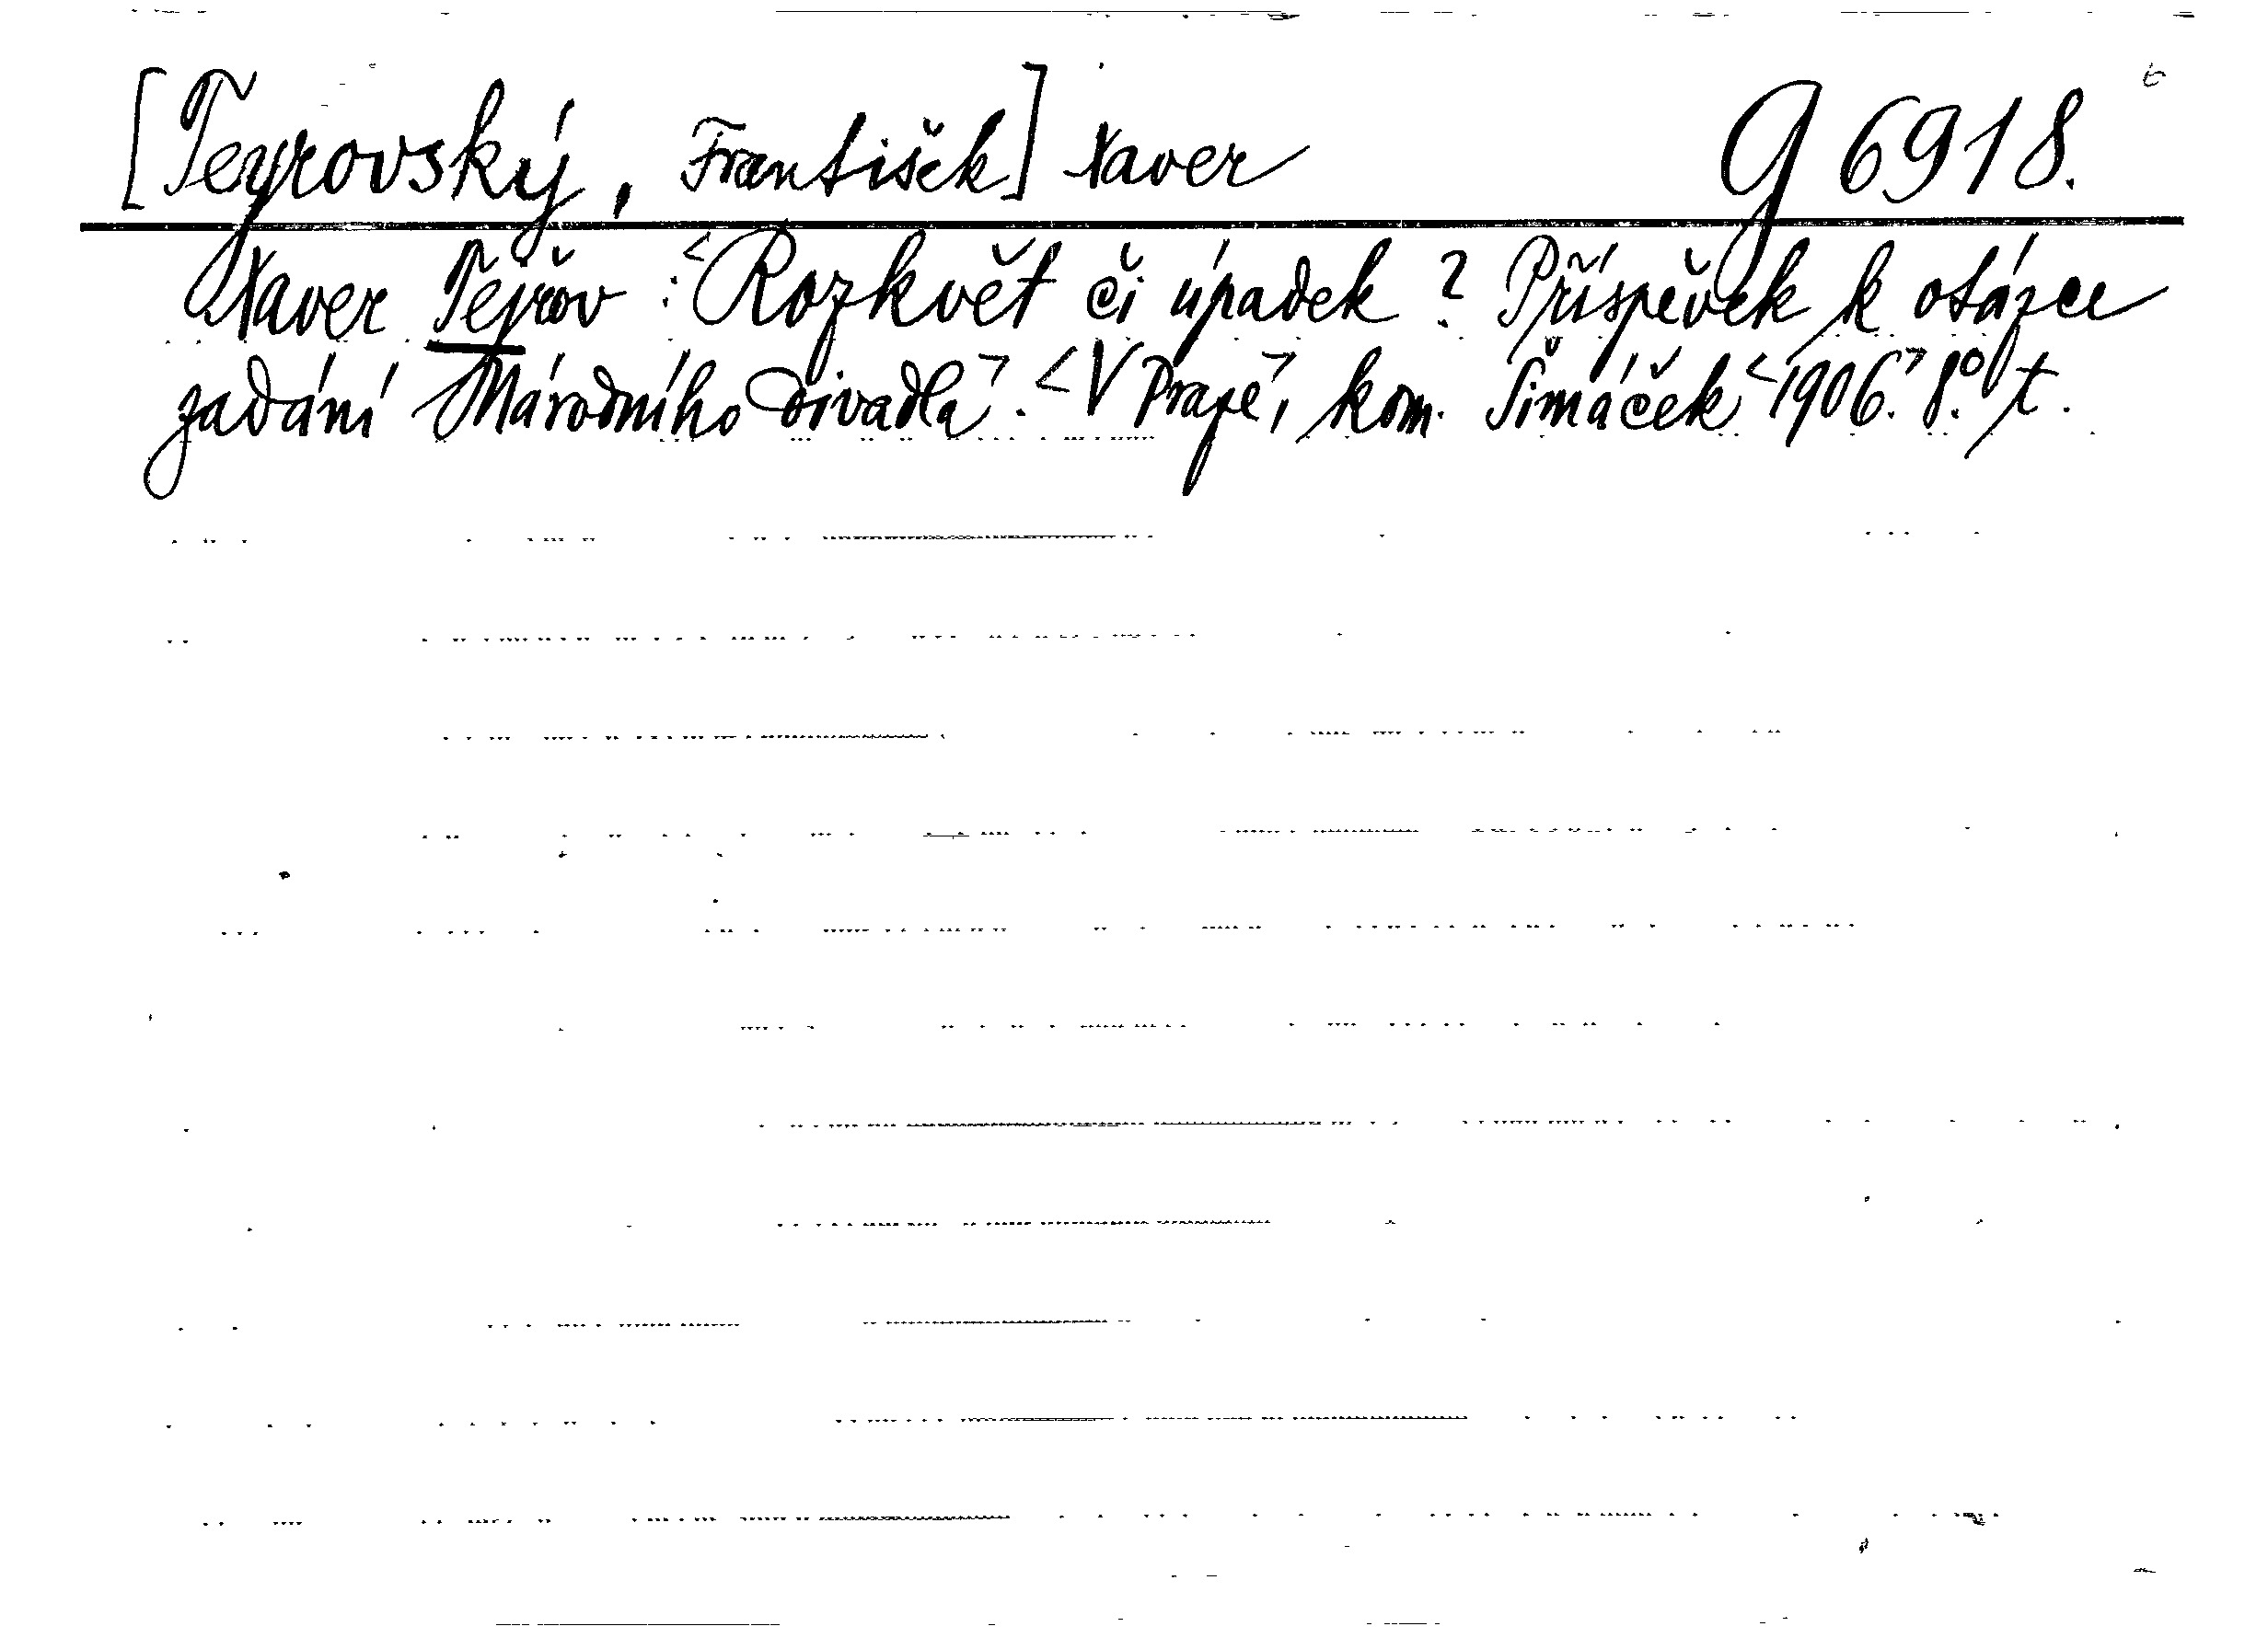 [Teyrovský, František] Xaver g 6918.
Xaver Tejřov : <Rozkvět či úpadek? Příspěvek k otázce
zadání Národního divadla>. <V Praze>, kom. Šimáček <1906.> 8.° t.